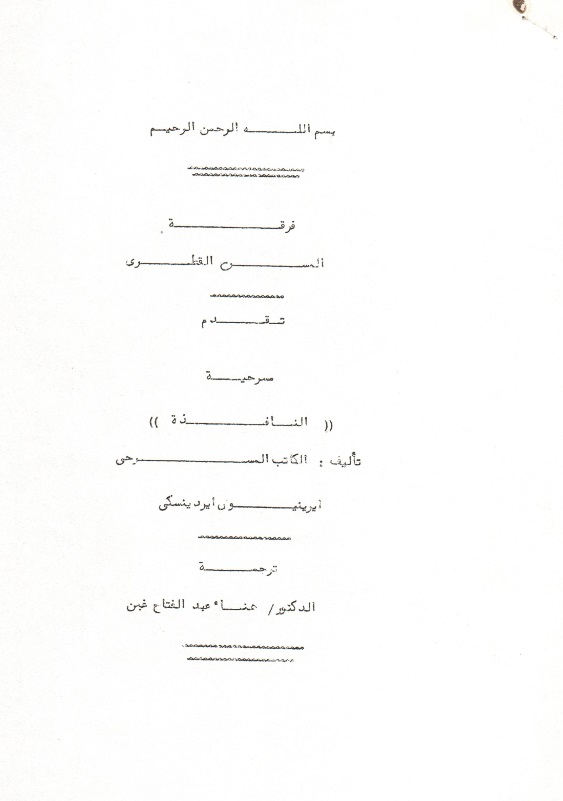 بسم اللـــــه الرحمن الرحيـم
فرقـــــــــــة
المســـــــرح القطـــــرى
تـقـــدم
مسرحيـــة
(( النـــافـــــــذة ))
تأليف : الكاتب المســـــــــرحى
ايرينيـــــــوش ايردينسكى
ترجمـــــة
الدكتور/ هنـاء عبد الفتاح